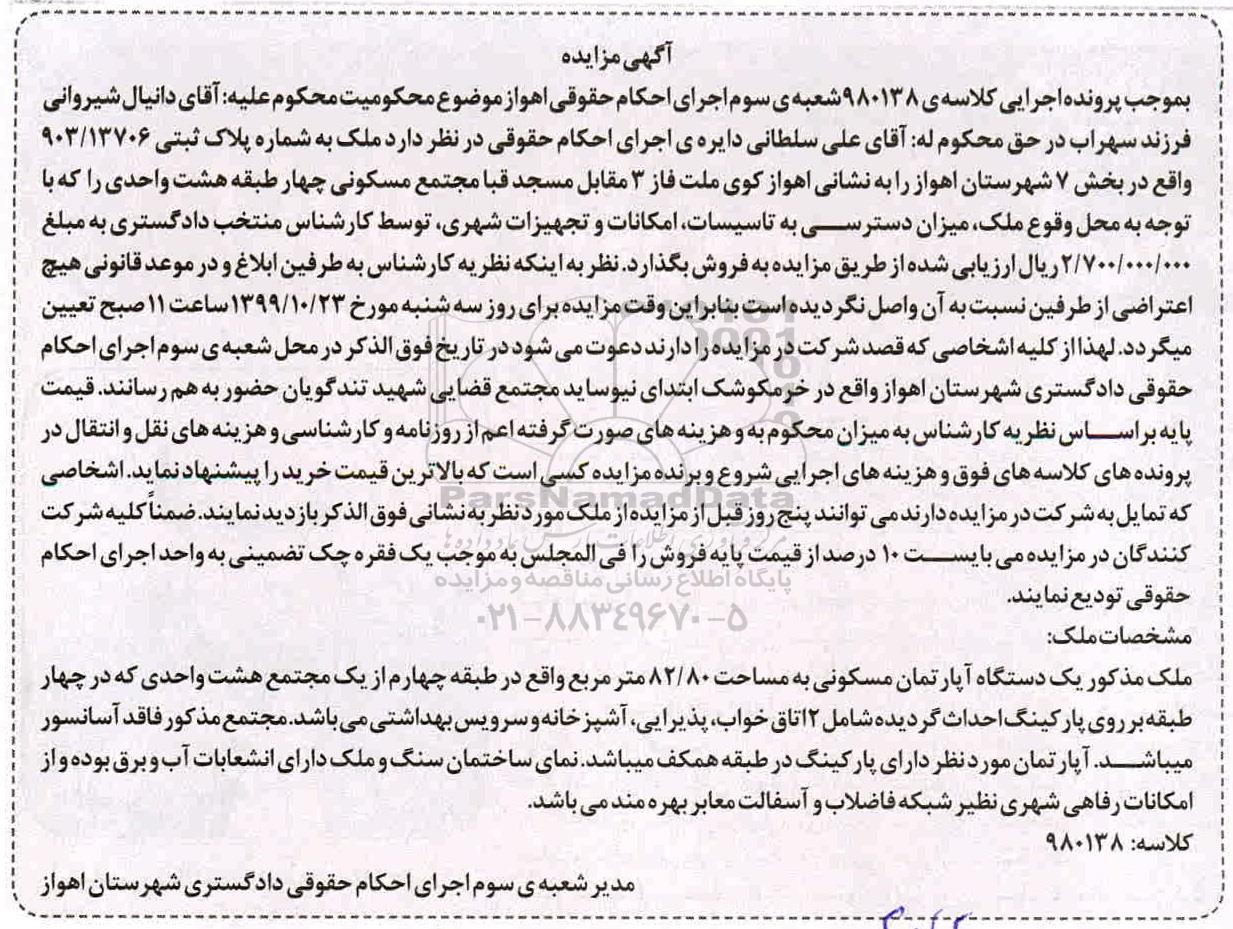 آگهی مزایده
بموجب پرونده اجرایی کلاسه ی ۹۸۰۱۳۸ شعبه ی سوم اجرای احکام حقوقی اهواز موضوع محکومیت محکوم علیه: آقای دانیال شیروانی
فرزند سهراب در حق محکوم له: آقای علی سلطانی دایره ی اجرای احکام حقوقی در نظر دارد ملک به شماره پلاک ثبتی ۹۰۳/۱۳۷۰۶
واقع در بخش ۷ شهرستان اهواز را به نشانی اهواز کوی ملت فاز ۳ مقابل مسجد قبا مجتمع مسکونی چهار طبقه هشت واحدی را که با
توجه به محل وقوع ملک، میزان دسترسی به تاسیسات، امکانات و تجهیزات شهری، توسط کارشناس منتخب دادگستری به مبلغ
۲/۷۰۰/۰۰۰/۰۰۰ ریال ارزیابی شده از طریق مزایده به فروش بگذارد. نظر به اینکه نظریه کارشناس به طرفین ابلاغ و در موعد قانونی هیچ
اعتراضی از طرفین نسبت به آن واصل نگردیده است بنابراین وقت مزایده برای روز سه شنبه مورخ ۱۳۹۹/۱۰/۲۳ ساعت ۱۱ صبح تعیین
میگردد. لهذا از کلیه اشخاصی که قصد شرکت در مزایده را دارند دعوت می شود در تاریخ فوق الذکر در محل شعبه ی سوم اجرای احکام
حقوقی دادگستری شهرستان اهواز واقع در خرمکوشک ابتدای نیوساید مجتمع قضایی شهید تندگویان حضور به هم رسانند. قیمت
پایه براساس نظریه کارشناس به میزان محکوم به و هزینه های صورت گرفته اعم از روزنامه و کارشناسی و هزینه های نقل و انتقال در
پرونده های کلاسه های فوق و هزینه های اجرایی شروع و برنده مزایده کسی است که بالاترین قیمت خرید را پیشنهاد نماید. اشخاصی
که تمایل به شرکت در مزایده دارند می توانند پنج روز قبل از مزایده از ملک مورد نظر به نشانی فوق الذکر بازدید نمایند. ضمناً کلیه شرکت
کنندگان در مزایده می بایست ۱۰ درصد از قیمت پایه فروش را فی المجلس به موجب یک فقره چک تضمینی به واحد اجرای احکام
حقوقی تودیع نمایند.
مشخصات ملک:
ملک مذکور یک دستگاه آپارتمان مسکونی به مساحت ۸۲/۸۰ متر مربع واقع در طبقه چهارم از یک مجتمع هشت واحدی که در چهار
طبقه بر روی پارکینگ احداث گردیده شامل ۲ اتاق خواب، پذیرایی، آشپزخانه و سرویس بهداشتی می باشد. مجتمع مذکور فاقد آسانسور
میباشد. آپارتمان مورد نظر دارای پارکینگ در طبقه همکف میباشد. نمای ساختمان سنگ و ملک دارای انشعابات آب و برق بوده و از
امکانات رفاهی شهری نظیر شبکه فاضلاب و آسفالت معابر بهره مند می باشد.
کلاسه: ۹۸۰۱۳۸
مدیر شعبه ی سوم اجرای احکام حقوقی دادگستری شهرستان اهواز
ParsNamadData
پایگاه اطلاع رسانی مناقصه و مزایده
۰۲۱-۸۸۳۴۹۶۷۰-۵